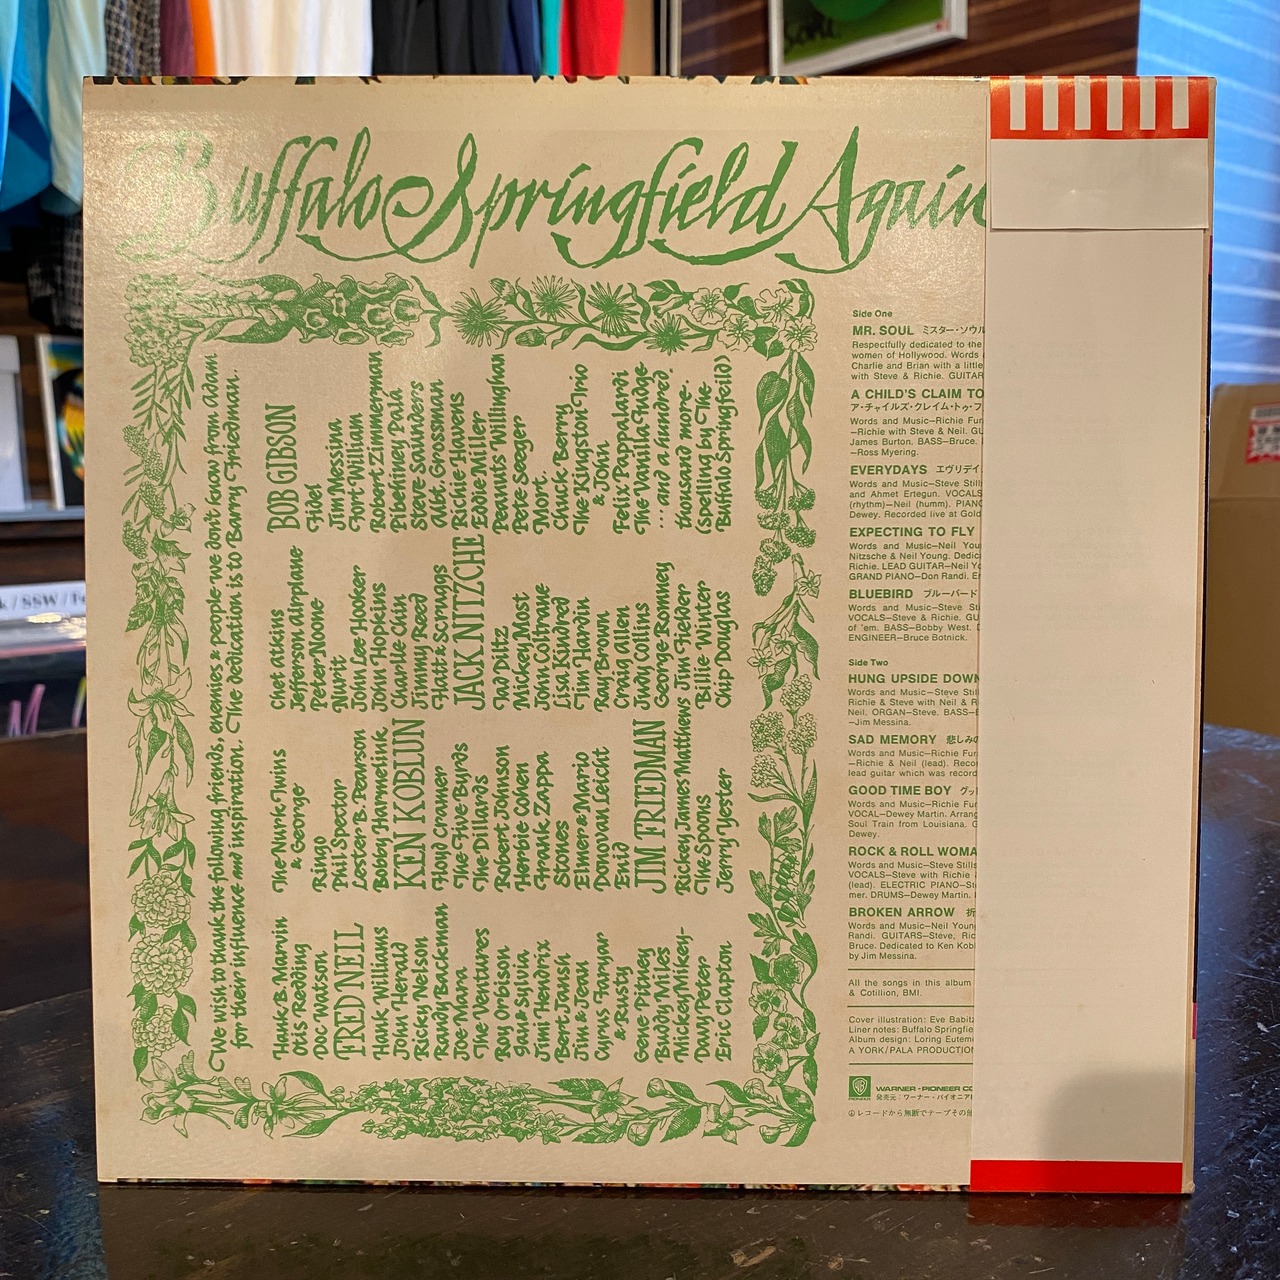 Buffalo Springfield Again
We wish to thank the following friends, enemies & people we don't know from Adam
for their influence and inspiration. The dedication is to Barry Friedman.
Hank B. Marvin
Otis Redding
Doc Watson
FRED NEIL
Hank Williams
John Herald
Ricky Nelson
Randy Backman
Joe Mara
The Ventures
Roy Orbison
Ian & Sylvia
Jimi Hendrix
Bert Jansh
Jim & Jean
Cyrus Faryar
& Rusty
Gene Pitney
Buddy Miles
Mickey Mikey-
Davy Peter
Eric Clapton
The Nurk Twins
& George
Ringo
Phil Spector
Lester B. Pearson
Bobby Harmelink
KEN KOBLUN
Floyd Cramer
The Five Byrds
The Dillards
Robert Johnson
Herbie Cohen
Frank Zappa
Stones
Elmer & Mario
Donovan Leicht
Enid
JIM FRIEDMAN
Rickey James Matthews
The Spoons
Jerry Yester
Chet Atkins
Jefferson Airplane
Peter Noone
Nurit
John Lee Hooker
John Hopkins
Charlie Chin
Jimmy Reed
Flatt & Scruggs
JACK NITZCHE
Tad Diltz
Mickey Most
John Coltrane
Lisa Kindred
Tim Hardin
Ray Brown
Craig Allen
Judy Collins
George Romney
Jim Fielder
Billie Winter
Chip Douglas
BOB GIBSON
Fidel
Jim Messina
Fort William
Robert Zimmerman
Pibehiney Palá
Steve Saunders
Albt. Grossman
Richie Havens
Eddie Miller
Peanuts Willinghan
Pete Seeger
Mort.
Chuck Berry
The Kingston Trio
& John
Felix Pappalardi
The Vanilla Fudge
... and a hundred
thousand more.
(Spelling by The
Buffalo Springfeild)
Side One
MR. SOUL ミスター・ソウル
Respectfully dedicated to the
women of Hollywood. Words
Charlie and Brian with a little
with Steve & Richie. GUITAR
A CHILD'S CLAIM TO
ア・チャイルズ・クレイム・トゥ・フ
Words and Music—Richie Fur
—Richie with Steve & Neil. GU
James Burton. BASS—Bruce.
—Ross Myering.
EVERYDAYS エヴリデイ
Words and Music—Steve Still
and Ahmet Ertegun. VOCALS
(rhythm)—Neil (humm). PIANO
Dewey. Recorded live at Gold
EXPECTING TO FLY
Words and Music—Neil You
Nitzsche & Neil Young. Dedic
Richie. LEAD GUITAR—Neil Yo
GRAND PIANO—Don Randi. En
BLUEBIRD ブルーバード
Words and Music—Steve St
VOCALS—Steve & Richie. GU
of 'em. BASS—Bobby West. D
ENGINEER—Bruce Botnick.
Side Two
HUNG UPSIDE DOWN
Words and Music—Steve Still
Richie & Steve with Neil & R
Neil. ORGAN—Steve. BASS—B
—Jim Messina.
SAD MEMORY 悲しみの
Words and Music—Richie Fur
—Richie & Neil (lead). Recor
lead guitar which was record
GOOD TIME BOY グッ
Words and Music—Richie Fur
VOCAL—Dewey Martin. Arrang
Soul Train from Louisiana. G
Dewey.
ROCK & ROLL WOMA
Words and Music—Steve Stills
VOCALS—Steve with Richie
(lead). ELECTRIC PIANO—St
mer. DRUMS—Dewey Martin.
BROKEN ARROW 折
Words and Music—Neil Young
Randi. GUITARS—Steve, Ric
Bruce. Dedicated to Ken Kobl
by Jim Messina.
All the songs in this album
& Cotillion, BMI.
Cover illustration: Eve Babitz
Liner notes: Buffalo Springfie
Album design: Loring Euteme
A YORK/PALA PRODUCTION
WARNER-PIONEER CO
発売元：ワーナー・パイオニア
レコードから無断でテープその他
/ SSW /